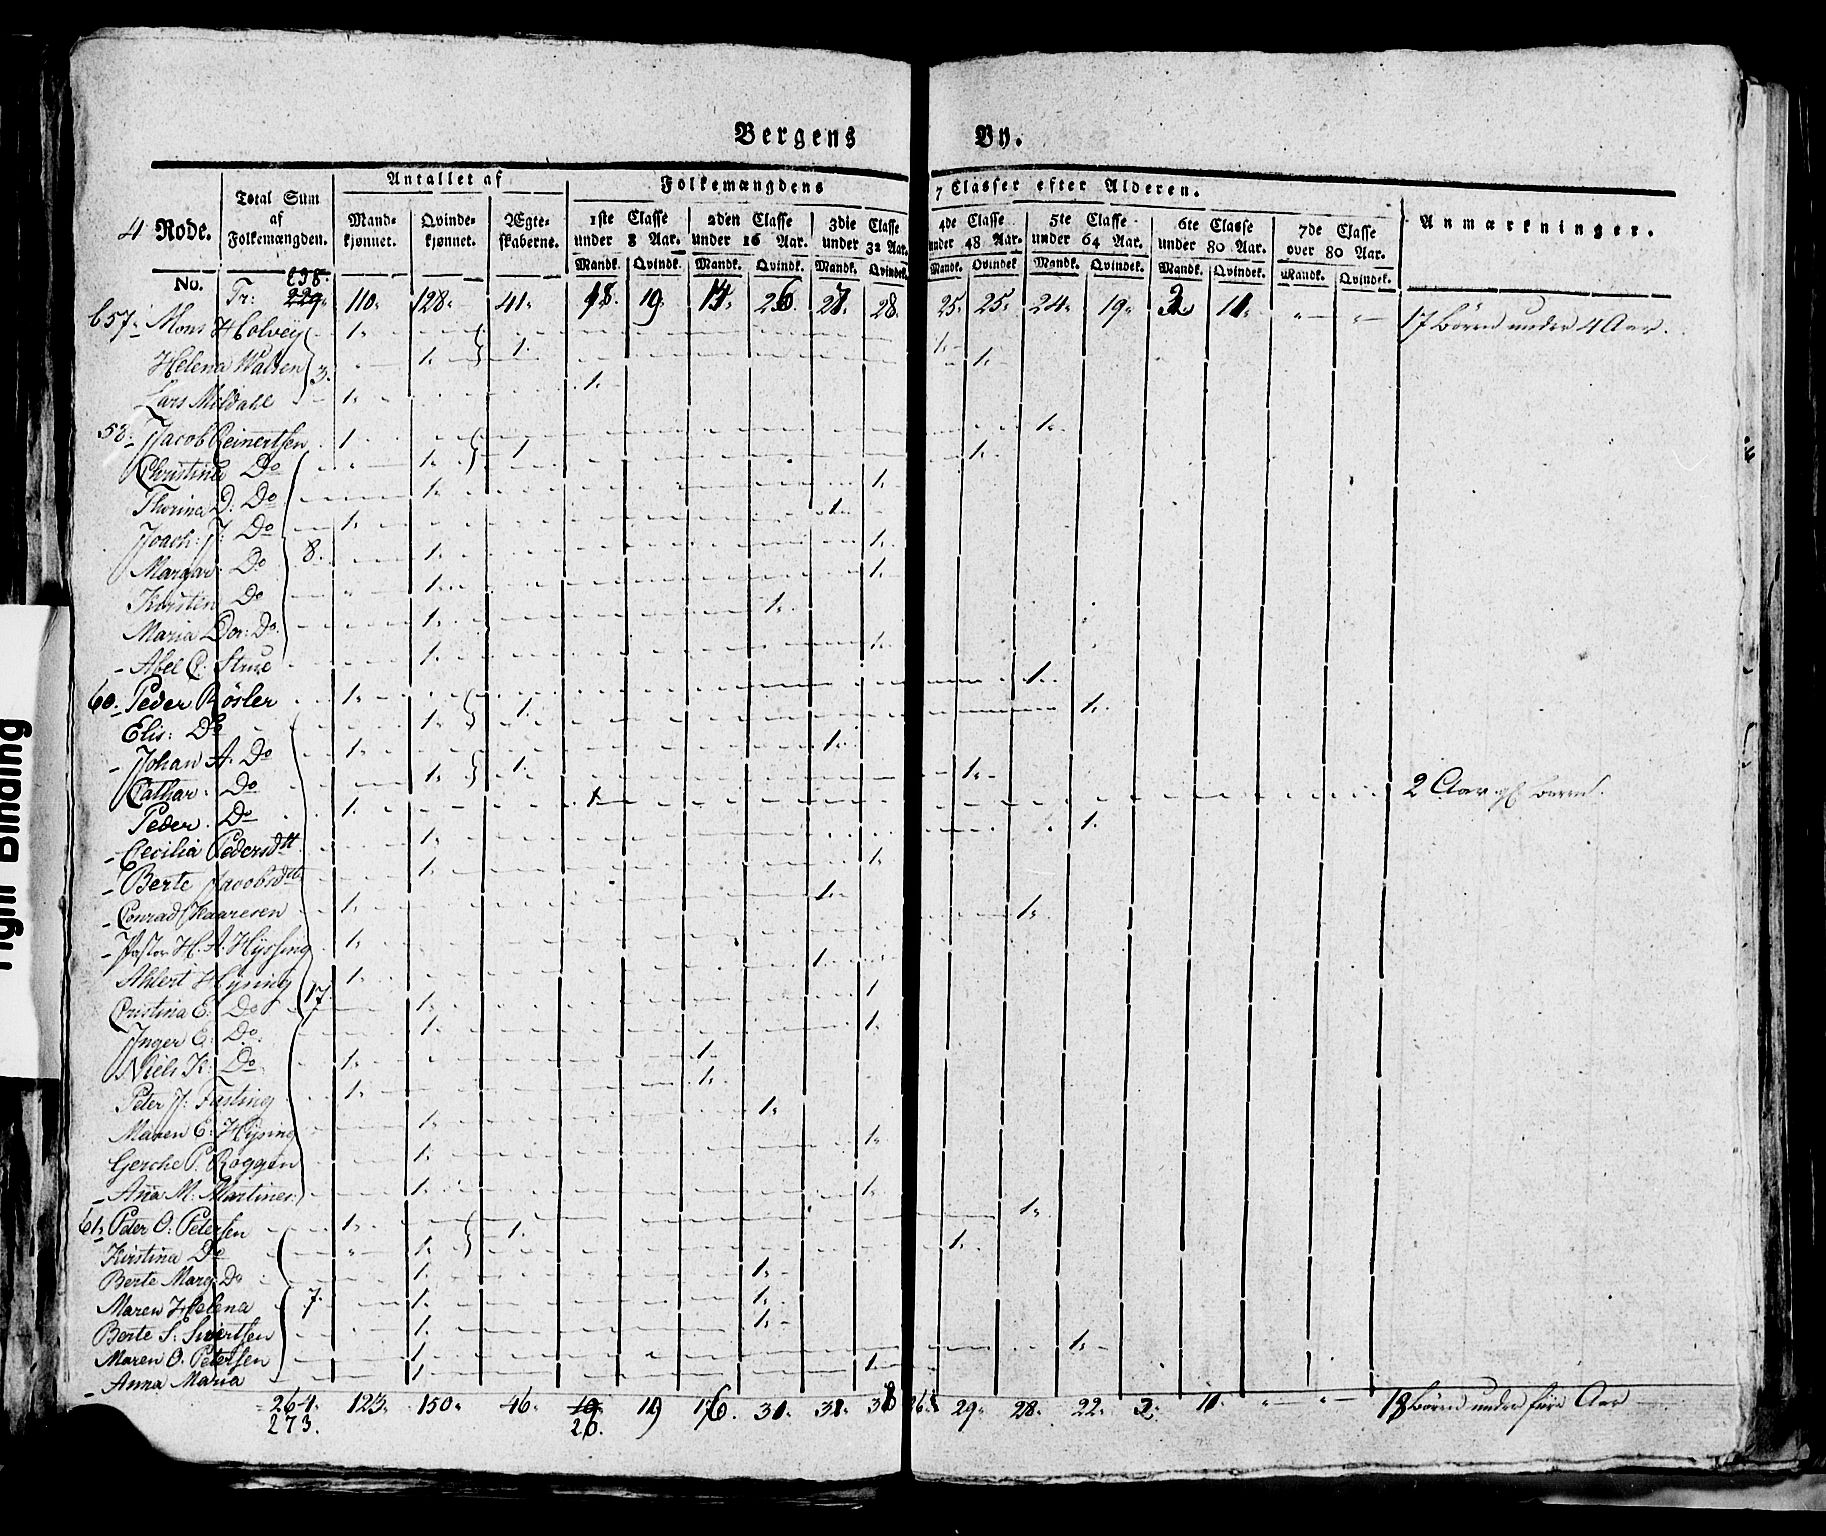 Bergens By.
4 Rode.
Total Sum af Folkemængden.
Antallet af
Mandkjønnet. Qvindekjønnet. Ægteskaberne.
Folkemængdens 7 Classer efter Alderen.
1ste Classe under 8 Aar. 2den Classe under 16 Aar. 3die Classe under 32 Aar. 4de Classe under 48 Aar. 5te Classe under 64 Aar. 6te Classe under 80 Aar. 7de Classe over 80 Aar.
Mandk. Qvindk. Mandk. Qvindk. Mandk. Qvindek. Mandk. Qvindek Mandk. Qvindek. Mandk. Qvindek. Mandk. Qvindek.
Anmærkninger.
No. Tr: 238. 229. 110. 128. 41. 18. 19. 26. 27. 28. 25. 25. 24. 19. 11. 17 Börn under 4 Aar.
657. Mons Holvey 1.
Helena Walsen 3. 1. 1. 1.
Lars Meldahl 1. 1.
58. Jacob Reinertsen 1. 1.
Christina Do 1. 1. 1.
Thorina D: Do 1. 1.
Joach: J: Do 1. 1.
Margar: Do 8. 1. 1.
Kirsten Do 1. 1.
Maria Dor: Do 1. 1.
Abel C. Struc 1. 1.
60. Peder Rösler 1. 1.
Elis: Do 1. 1. 1.
Johan A. Do 1. 1.
Cathar. Do 1. 1. 1.
Peder. Do 1. 1. 2 Aar gl barn
Cecilia Pedersdtt 1. 1.
Berte Jacobsdtt 1. 1.
Conrad Kaaresen 1. 1.
Pastor H. A. Hyssing 1. 1.
Ahlert Hysing 1. 1.
Cristina E: Do 17. 1. 1
Inger E: Do 1. 1.
Niels K: Do 1. 1.
Peter J: Fasting 1. 1.
Maren E: Hysing 1. 1.
Gerche P. Roggen 1. 1.
Ana M: Martines: 1. 1.
61. Peter O: Petersen 1. 1.
Kirstina Do 1. 1. 1.
Berte Marg Do 1. 1.
Maren Helena 7. 1. 1.
Berte S: Sivertsen 1. 1.
Maren O. Petersen 1. 1.
Anna Maria 1. 1.
264. 123. 150. 46. 19. 31. 38 26. 29. 28. 22. 2. 11. 18 Börn under fire Aar
273. 20.